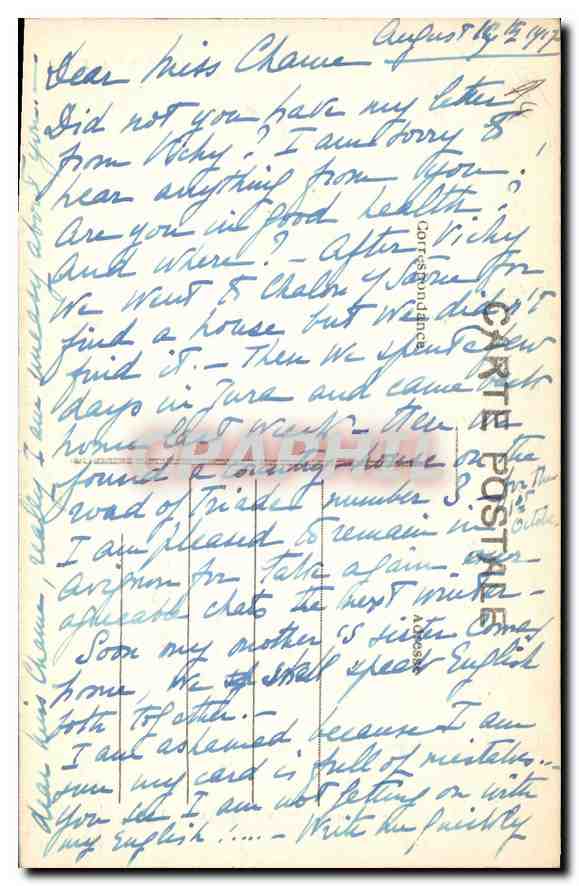 August 1917
Dear Miss Chame
Did not you have my letter
from Vichy? I am sorry to
hear anything from you!
Are you in good health?
And where? - After Vichy
We went to Chalon s/ Saône for
find a house but we didn't
find it. - Then we spent a few
days in Jura and came back
home last week - then we
found a house on the
road of number 3 for the
1st October
I am pleased to remain in
Avignon for take again our
agreable chats the next winter -
Soon my mother's sister comes
home, we shall speak English
both together. -
I am ashamed because I am
sure my card is full of mistakes...
You see I am not getting on with
my English!.... - Write me quickly
dear Miss Chame, really I am uneasy about you. -
CARTE POSTALE
Correspondance
Adresse
CRAPHTL